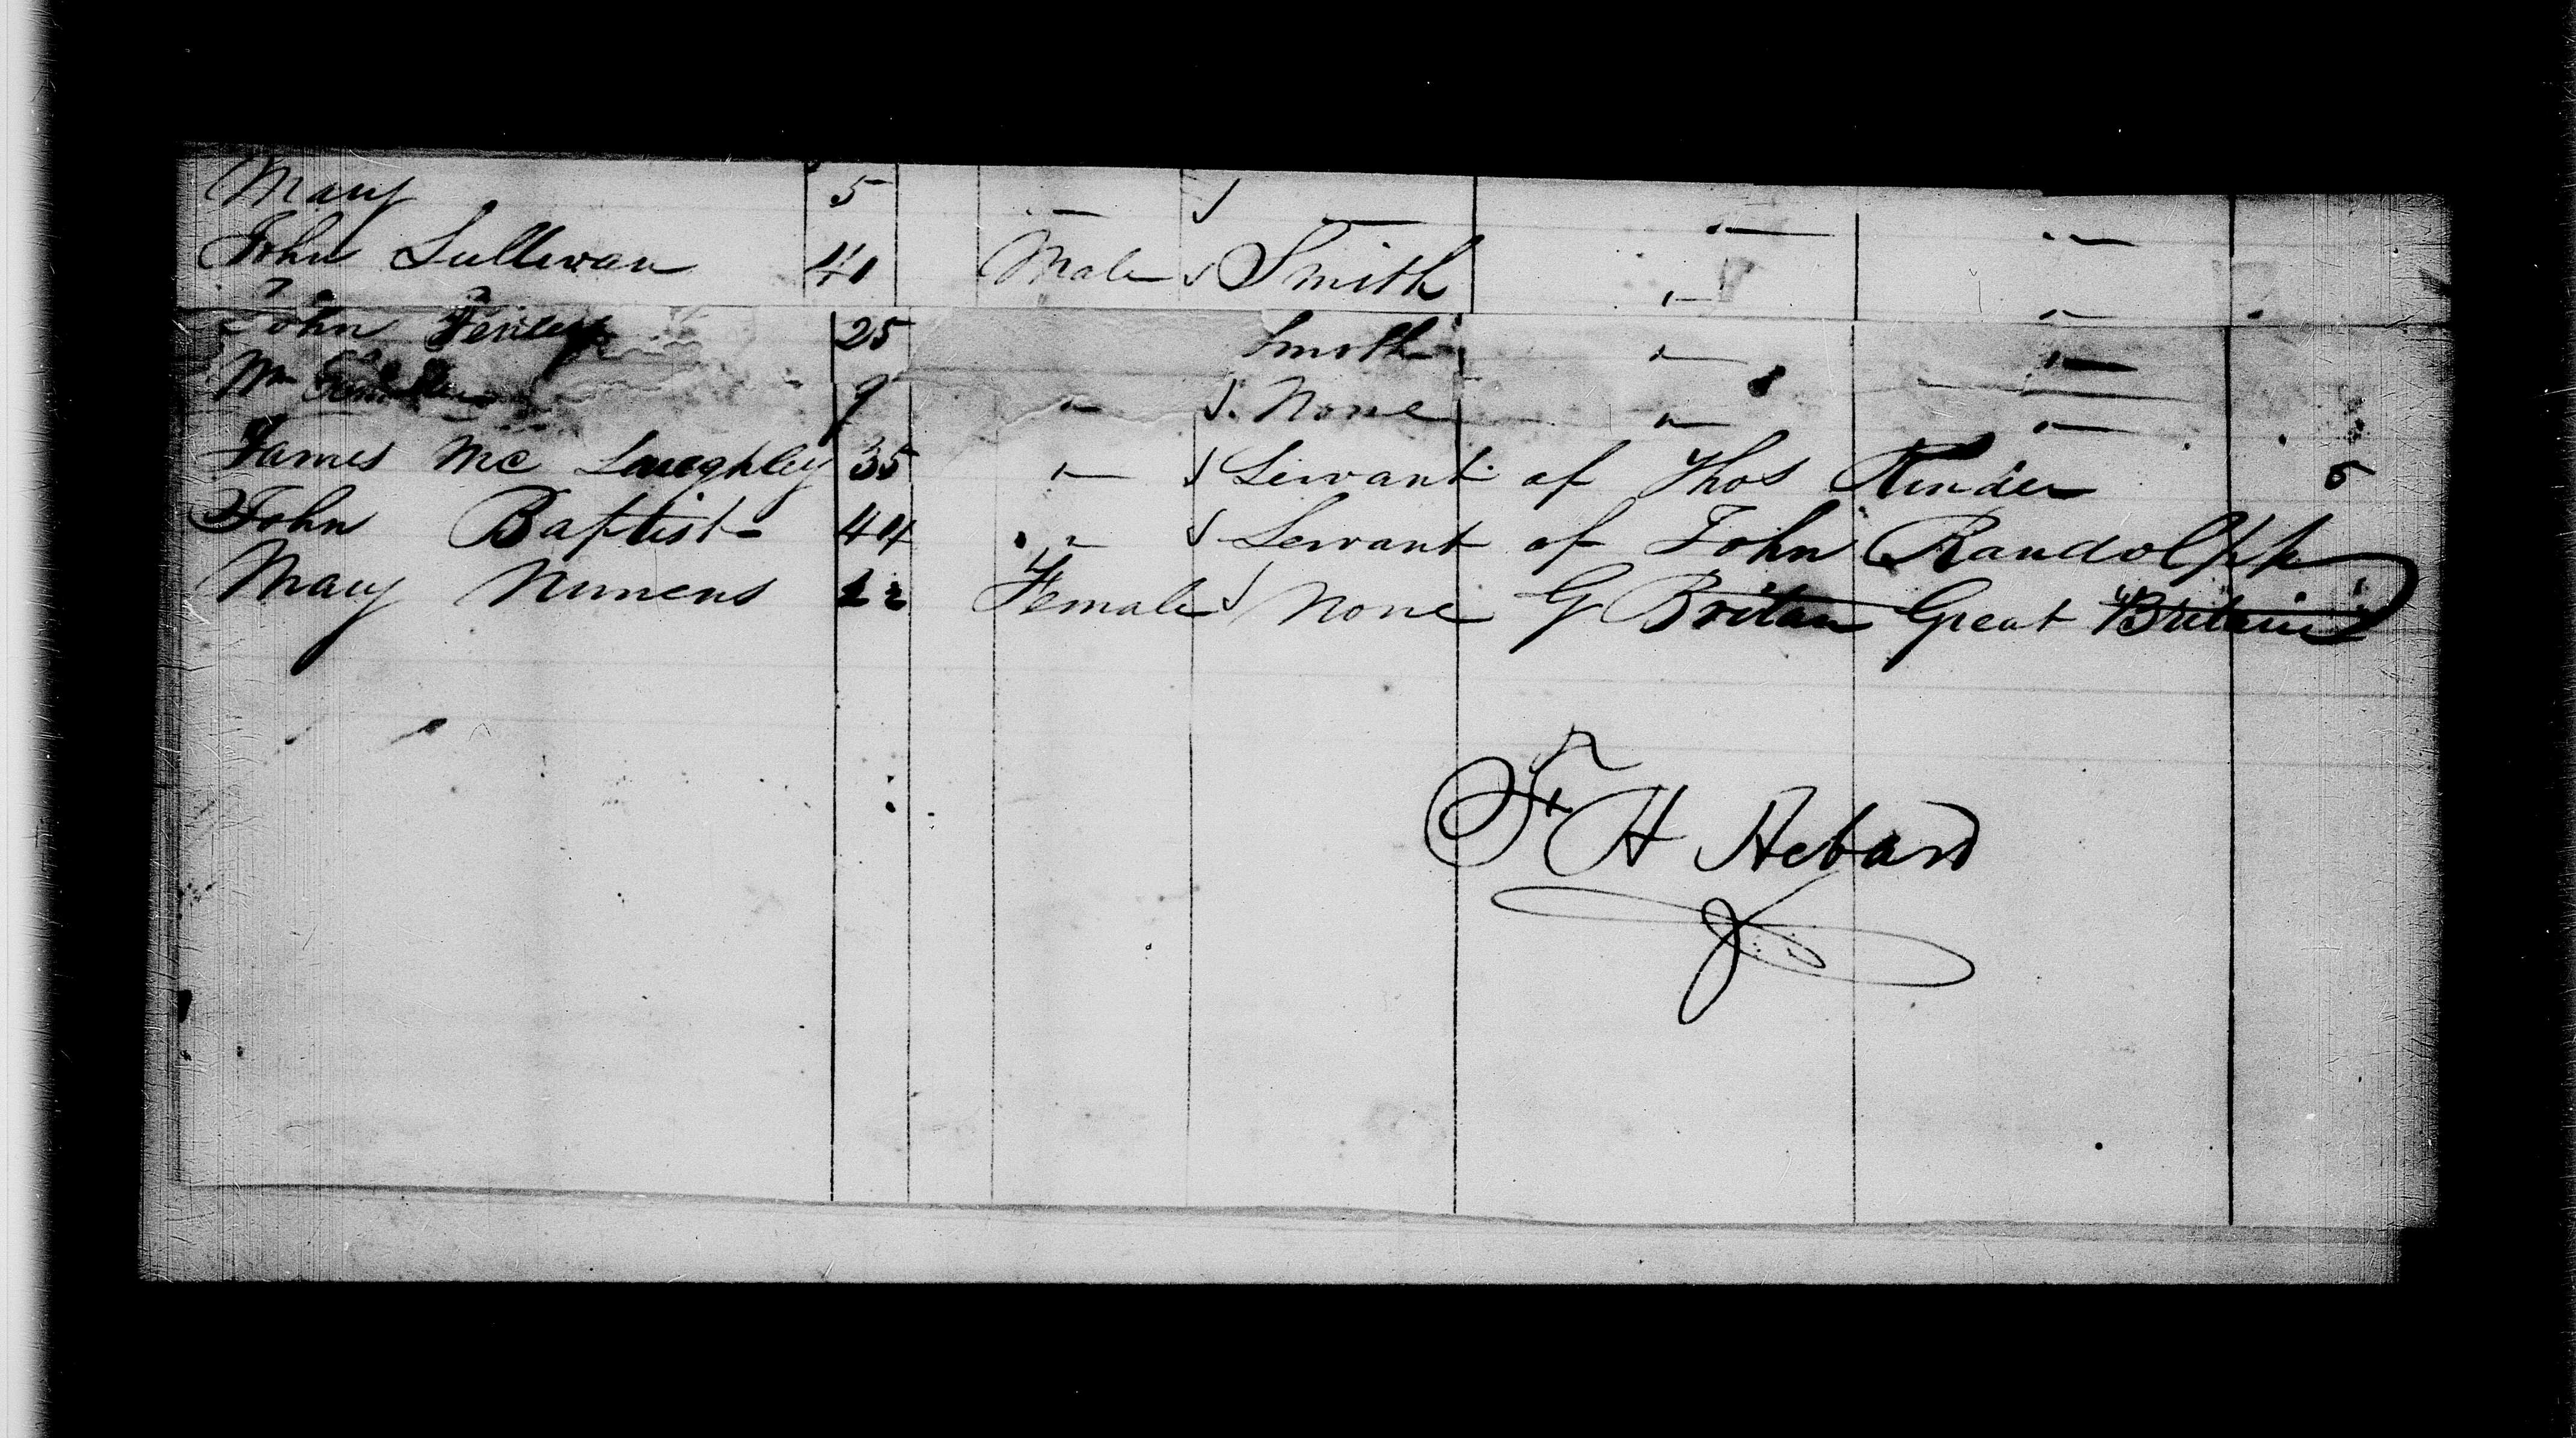 Mary 5 " ✓ " " "
John Sullivan 40 Male ✓ Smith " "
John 25 Smith " "
Wm 9 " ✓ None " "
James Mc Laughley 35 " ✓ Servant of Thos Kinder 5
John Baptist 44 " ✓ Servant of John Randolph
Mary Nimens 22 Female ✓ None G Britan Great Britain
H Hebard